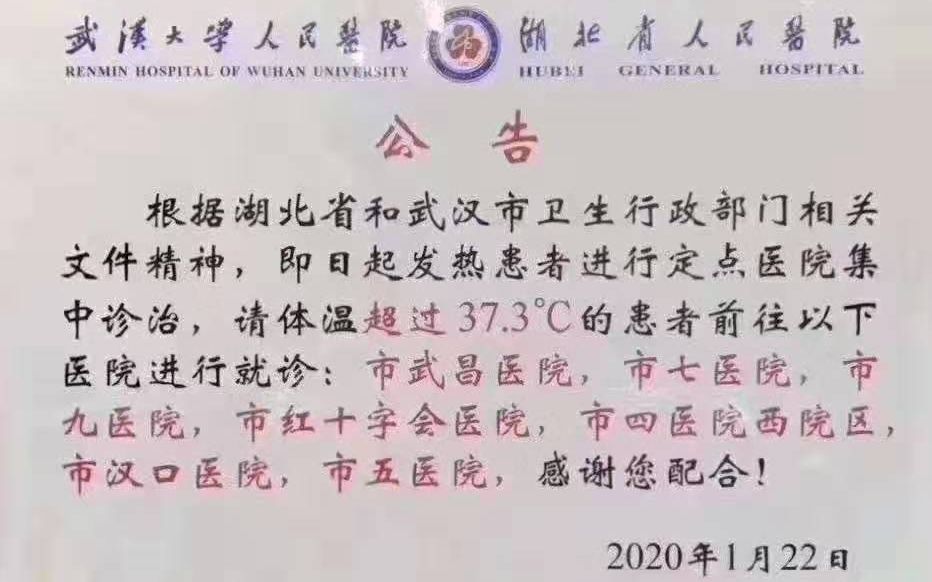 武漢大學人民醫院 湖北省人民醫院
RENMIN HOSPITAL OF WUHAN UNIVERSITY HUBEI GENERAL HOSPITAL
公告
根据湖北省和武汉市卫生行政部门相关
文件精神，即日起发热患者进行定点医院集
中诊治，请体温超过37.3℃的患者前往以下
医院进行就诊：市武昌医院，市七医院，市
九医院，市红十字会医院，市四医院西院区，
市汉口医院，市五医院，感谢您配合！
2020年1月22日